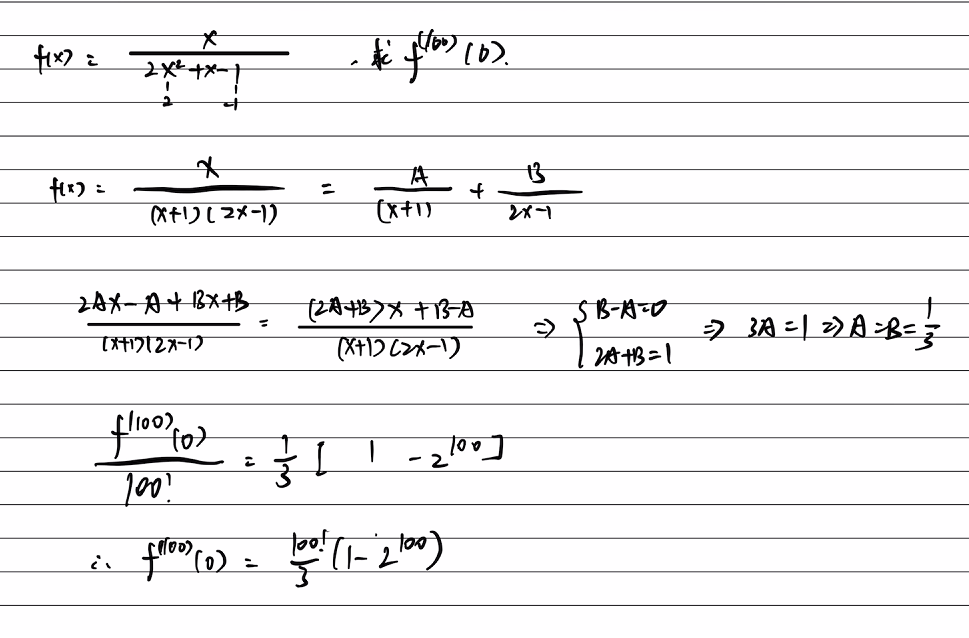 f(x) = x / (2x² + x - 1) , 求 f^(100)(0).
2 -1
f(x) = x / ((x+1)(2x-1)) = A / (x+1) + B / (2x-1)
(2Ax - A + Bx + B) / ((x+1)(2x-1)) = ((2A+B)x + B-A) / ((x+1)(2x-1)) ⇒ { B-A=0 2A+B=1 ⇒ 3A=1 ⇒ A=B=1/3
f^(100)(0) / 100! = 1/3 [ 1 - 2^100 ]
∴ f^(100)(0) = 100!/3 (1 - 2^100)